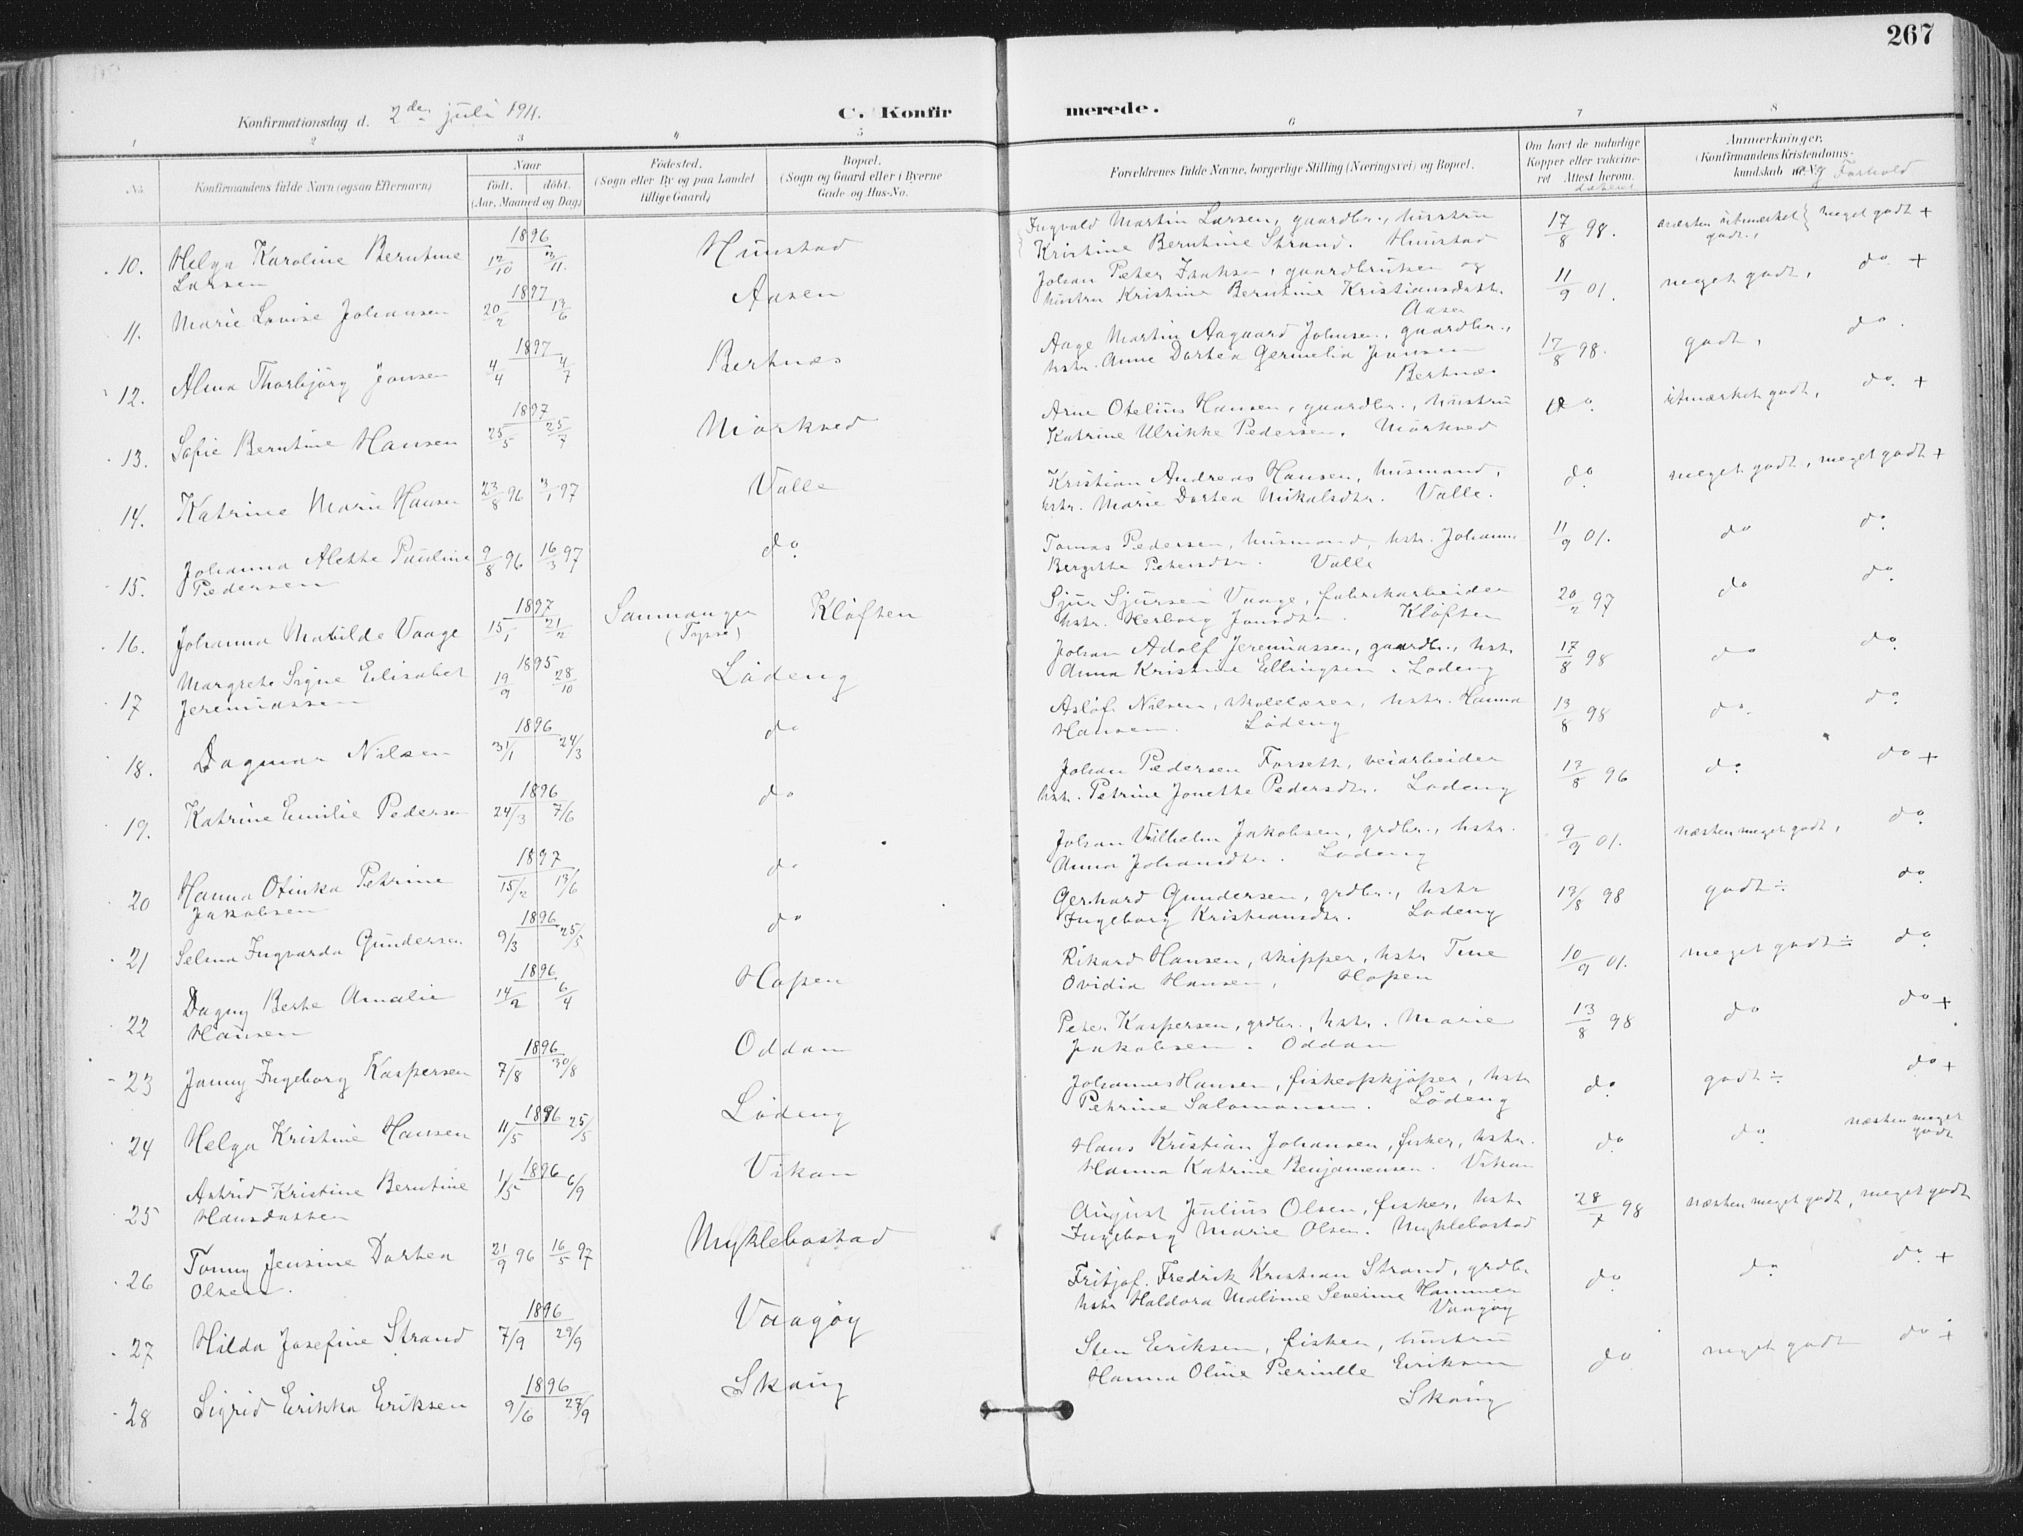 267
Konfirmationsdag d. 2den juli 1911.
C. Konfirmerede.
1 2 3 4 5 6 7 8
No.
Konfirmandens fulde Navn (ogsaa Efternavn)
Naar
født. døbt.
(Aar, Maaned og Dag)
Fødested.
(Sogn eller By og paa Landet
tillige Gaard)
Bopæl.
(Sogn og Gaard eller i Byerne
Gade og Hus-No.
Forældrenes fulde Navne, borgerlige Stilling (Næringsvei) og Bopæl.
Om havt de naturlige
Kopper eller vakcine-
ret Attest herom.
dateret
Anmerkninger.
(Konfirmandens Kristendoms-
kundskab m. V.) og Forhold
10. Helga Karoline Berntine
Larsen
1896 12/10 3/11
Hunstad
Ingvald Martin Larsen, gaardbr., hustru
Kristine Berntine Strand. Hunstad
17/8 98.
næsten utmerket
godt, meget godt +
11. Marie Lovise Johansen
1897 20/2 13/6
Aasen
Johan Peter Isaksen, gaardbruker og
hustru Kristine Berntine Kristiansdatter
Aasen
11/9 01.
meget godt, do. +
12. Alma Thorbjørg Jensen
1897 4/4 4/7
Bertnæs
Aage Martin Aagaard Johnsen, gaardbr.,
hstr. Anne Dortea Germelia Jensen
Bertnæs
17/8 98.
godt, do.
13. Sofie Berntine Hansen
1897 25/5 25/7
Mørkved
Arne Otelius Hansen, gaardbr., hustru
Katrine Ulrikke Pedersen. Mørkved
do.
utmærket godt, do. +
14. Katrine Marie Hansen
23/8 96 3/1 97
Valle
Kristian Andreas Hansen, husmand,
hstr. Marie Dortea Mikalsdtr. Valle.
do
meget godt, meget godt +
15. Johanna Alette Pauline
Pedersen
9/8 96 16/3 97
do
Tomas Pedersen, husmand, hstr. Johanna
Bergitte Petersdtr. Valle
11/9 01.
do do.
16. Johanna Matilde Vaage
1897 15/1 21/2
Sammanger
(Tysse)
Kløften
Sjur Sjursen Vaage, fabrikarbeider
hstr. Herborg Jonsdtr. Kløften
20/2 97
do do.
17 Margrete Signe Elisabet
Jeremiassen
1895 19/9 28/10
Løding
Johan Adolf Jeremiassen, gaardbr., hstr.
Anna Kristine Ellingsen. Lødeng
17/8 98
do do.
18. Dagmar Nilsen
1896 31/1 24/3
do
Asløf Nilsen, skolelærer, hstr. Hanna
Hansen. Lødeng
13/8 98
do. do.
19. Katrine Emilie Pedersen
1896 24/3 7/6
do
Johan Pedersen Forseth, veiarbeider
hstr. Petrine Jonette Pedersdtr. Lødeng
17/8 96
do. do +
20 Hanna Otinka Petrine
Jakobsen
1897 15/2 13/6
do
Johan Vilhelm Jakobsen, grdbr., hstr.
Anna Johansdtr. Lødeng
9/9 01.
næsten meget godt, do.
21 Selma Ingvarda Gundersen
1896 9/3 25/5
do
Gerhard Gundersen, grdbr., hstr
Ingeborg Kristiansdtr. Lødeng
13/8 98
godt ÷ do.
22 Dagny Berte Amalie
Hansen
1896 14/2 6/4
Hopen
Rikard Hansen, skipper, hstr Tine
Ovidia Hansen, Hopen
10/9 01.
meget godt ÷ do
23 Janny Ingeborg Kaspersen
1896 7/8 30/8
Oddan
Peter Kaspersen, grdbr., hstr. Marie
Jakobsen. Oddan
13/8 98
do do +
24 Helga Kristine Hansen
1896 11/5 25/5
Lødeng
Johannes Hansen, fiskeopkjøper, hstr
Petrine Salomonsen. Lødeng
do
godt ÷ do +
25 Astrid Kristine Berntine
Hansdatter
1896 1/5 6/9
Vikan
Hans Kristian Johansen, fisker, hstr.
Hanna Katrine Benjamensen. Vikan
do
do. næsten meget
godt
26 Tonny Jensine Dortea
Olsen.
21/9 96 16/5 97
Myklebostad
August Julius Olsen, fisker, hstr
Ingeborg Marie Olsen. Myklebostad
28/7 98
næsten meget godt, meget godt
27 Hilda Josefine Strand
1896 7/9 29/9
Vaagøy
Fritjof Fredrik Kristian Strand, grdbr
hstr Haldora Malime Severine Hammer
Vaagøy
do
do. do. +
28 Sigrid Erikka Eriksen
1896 9/6 27/9
Skaug
Sten Eriksen, fisker, hustru
Hanna Oline Pernille Eriksen
Skaug
do
meget godt do +